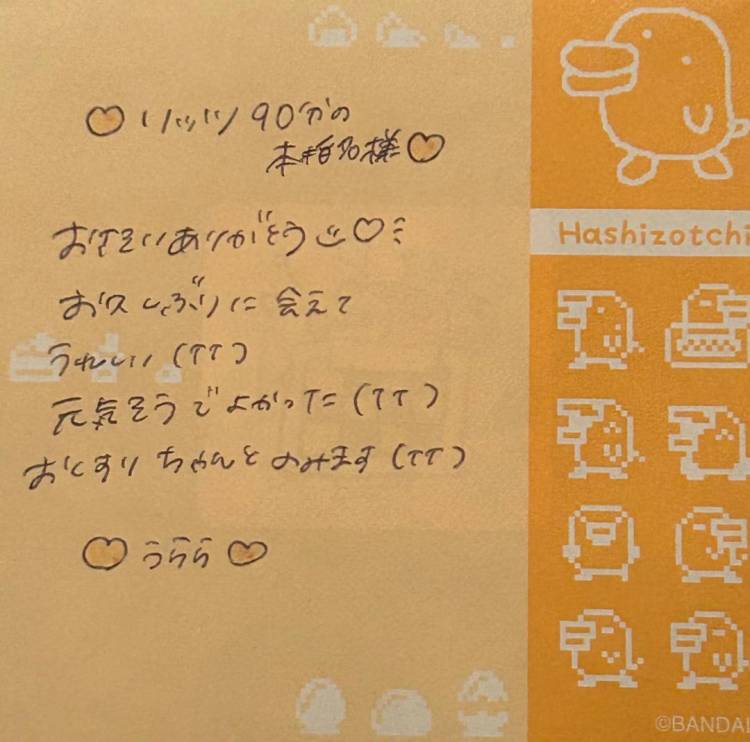 ♡リッツ90分の
本指名様♡
おさそいありがとう
お久しぶりに会えて
うれしい(TT)
元気そうでよかった(TT)
おくすりちゃんとのみます(TT)
♡うらら♡
Hashizotchi
©BANDAI